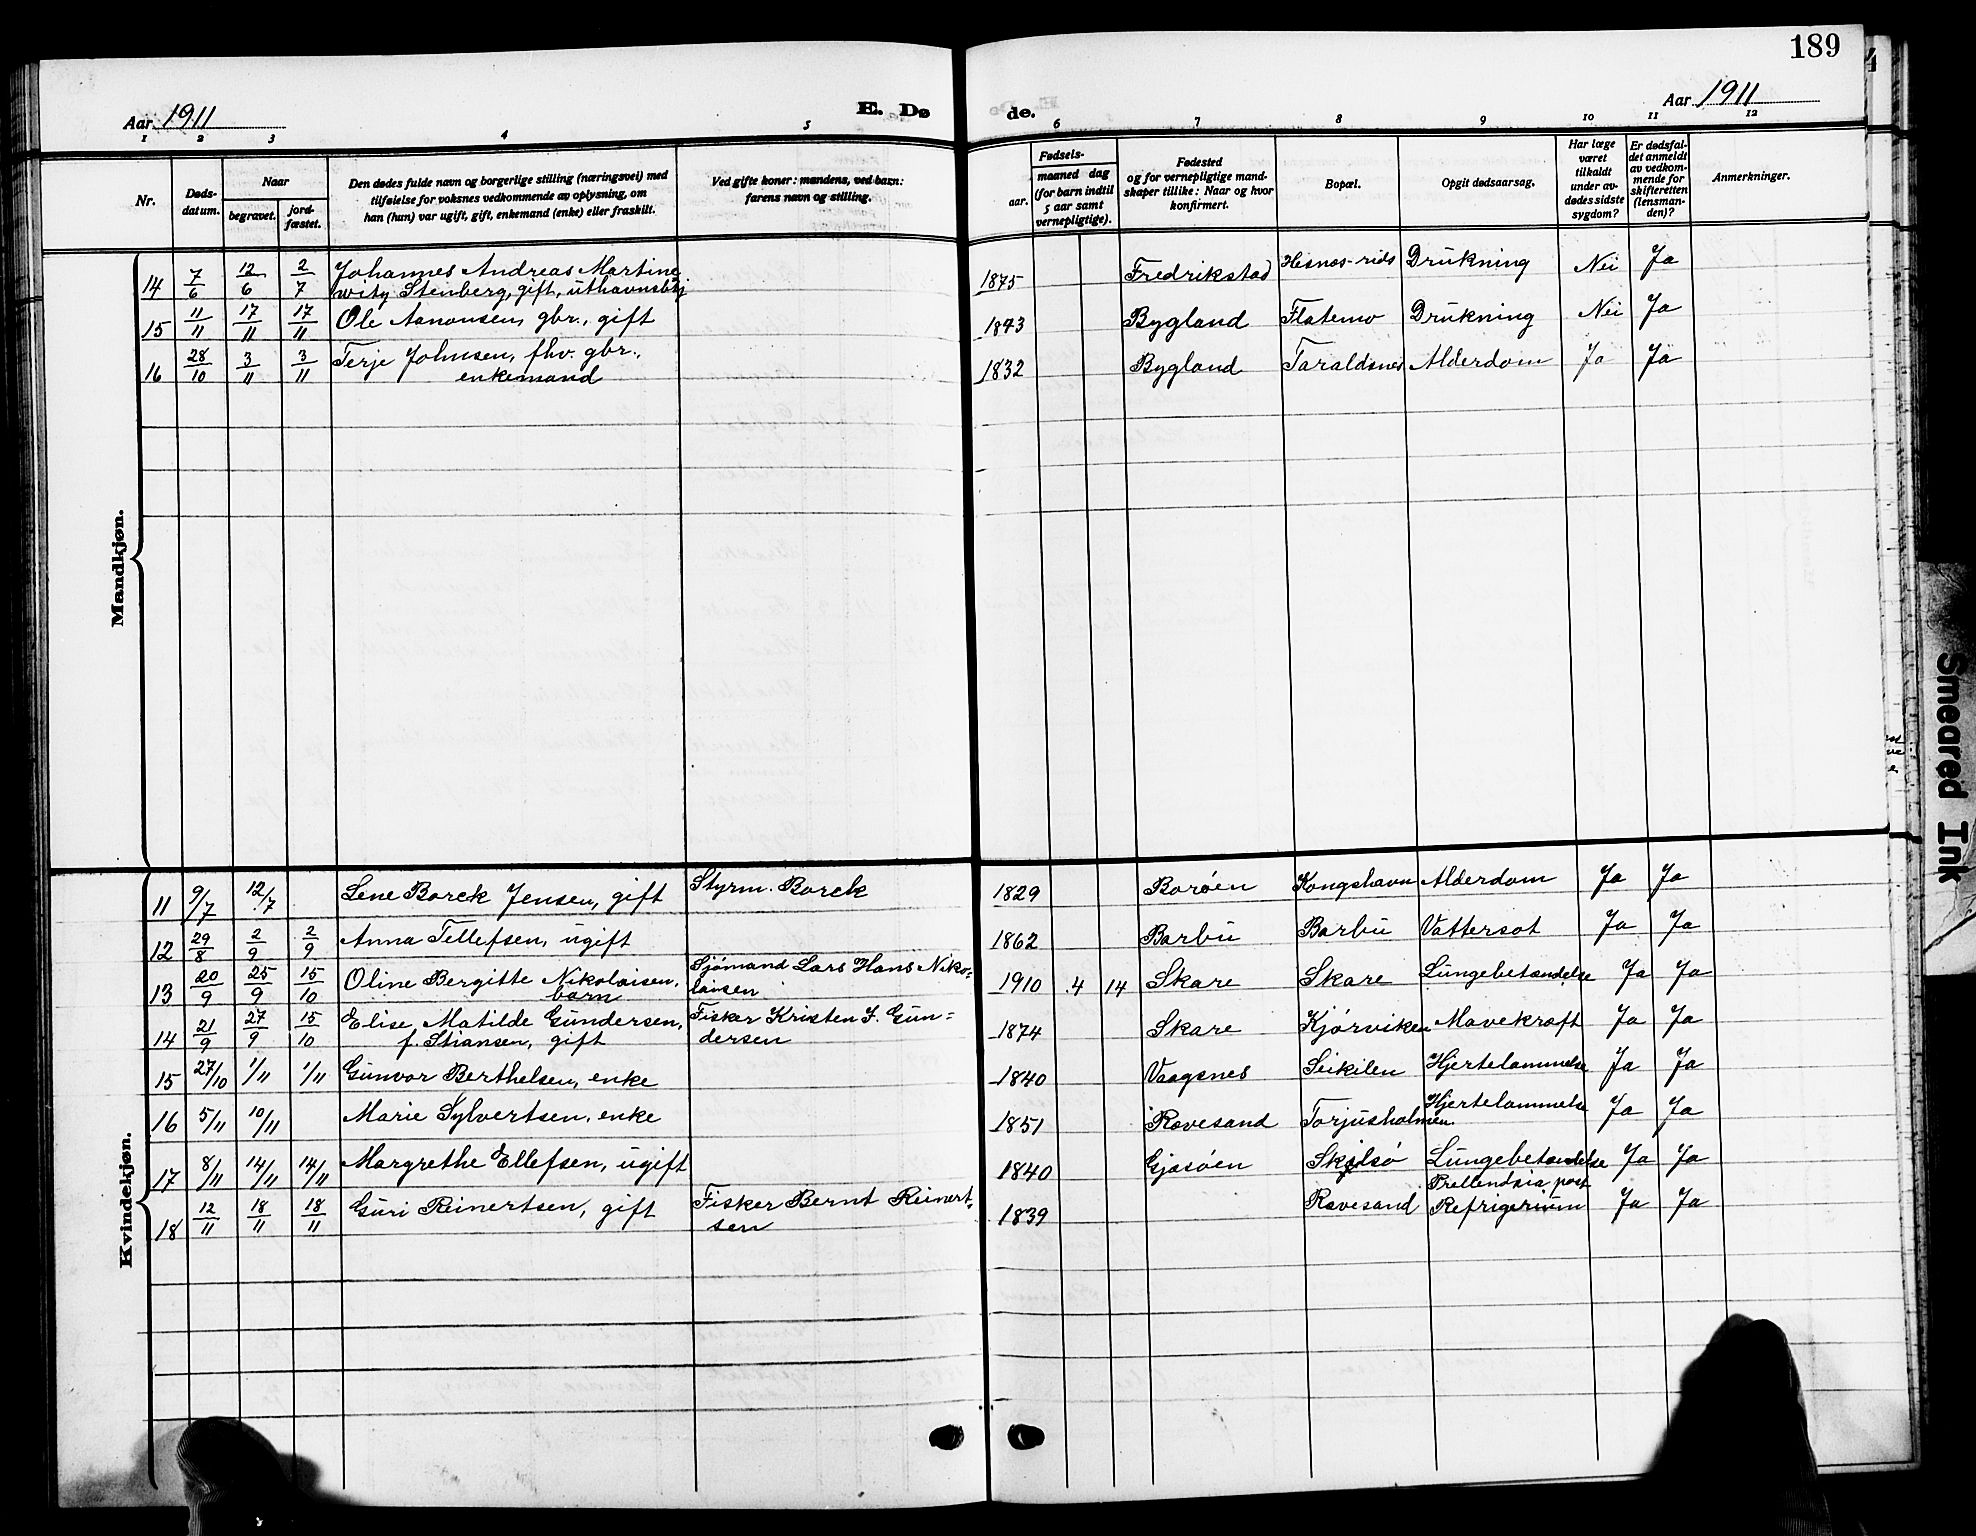 189
Aar 1911
E. Dø
de.
Aar 1911
1 2 3 4 5 6 7 8 9 10 11 12
Nr.
Døds-
datum.
Naar
begravet.
jord-
fæstet.
Den dødes fulde navn og borgerlige stilling (næringsvei) med
tilføielse for voksnes vedkommende av oplysning, om
han (hun) var ugift, gift, enkemand (enke) eller fraskilt.
Ved gifte koner: mandens, ved barn:
farens navn og stilling.
Fødsels-
aar.
maaned dag
(for barn indtil
5 aar samt
vernepligtige).
Fødested
og for vernepligtige mand-
skaper tillike: Naar og hvor
konfirmert.
Bopæl.
Opgit dødsaarsag.
Har læge
været
tilkaldt
under av-
dødes sidste
sygdom?
Er dødsfal-
det anmeldt
av vedkom-
mende for
skifteretten
(lensman-
den)?
Anmerkninger.
Mandkjøn.
14 7/6 12/6 2/7 Johannes Andreas Martine
Stenberg, gift, 1875 Fredrikstad Hesnes-rids Drukning Nei Ja
15 11/11 17/11 17/11 Ole Aanonsen, gbr., gift 1843 Bygland Flatemo Drukning Nei Ja
16 28/10 3/11 3/11 Terje Johnsen, fhv. gbr.,
enkemand 1832 Bygland Taraldsnes Alderdom Ja Ja
Kvindekjøn.
11 9/7 12/7 Lene Borck Jensen, gift Styrm. Borck 1829 Borøen Kongshavn Alderdom Ja Ja
12 29/8 2/9 2/9 Anna Tellefsen, ugift 1862 Barbu Barbu Vattersot Ja Ja
13 20/9 25/9 15/10 Oline Bergitte Nikolaisen, Sjømand Lars Hans Niko-
barn laisen 1910 4 14 Skare Skare Lungebetændelse Ja Ja
14 21/9 27/9 15/10 Elise Matilde Gundersen, Fisker Kristen J. Gun-
f. Stiansen, gift dersen 1874 Skare Kjørviken Mavekræft Ja Ja
15 27/10 1/11 1/11 Gunvor Berthelsen, enke 1840 Vaagsnes Seikilen Hjertelammelse Ja Ja
16 5/11 10/11 Marie Sylvertsen, enke 1851 Rævesand Torjusholmen. Hjertelammelse Ja Ja
17 8/11 14/11 14/11 Margrethe Ellefsen, ugift 1840 Gjasøen Skilsø Lungebetændelse Ja Ja
18 12/11 18/11 18/11 Guri Reinertsen, gift Fisker Bernt Reinert-
sen 1839 Rævesand post
Refrigerium Ja Ja
Smeared Ink